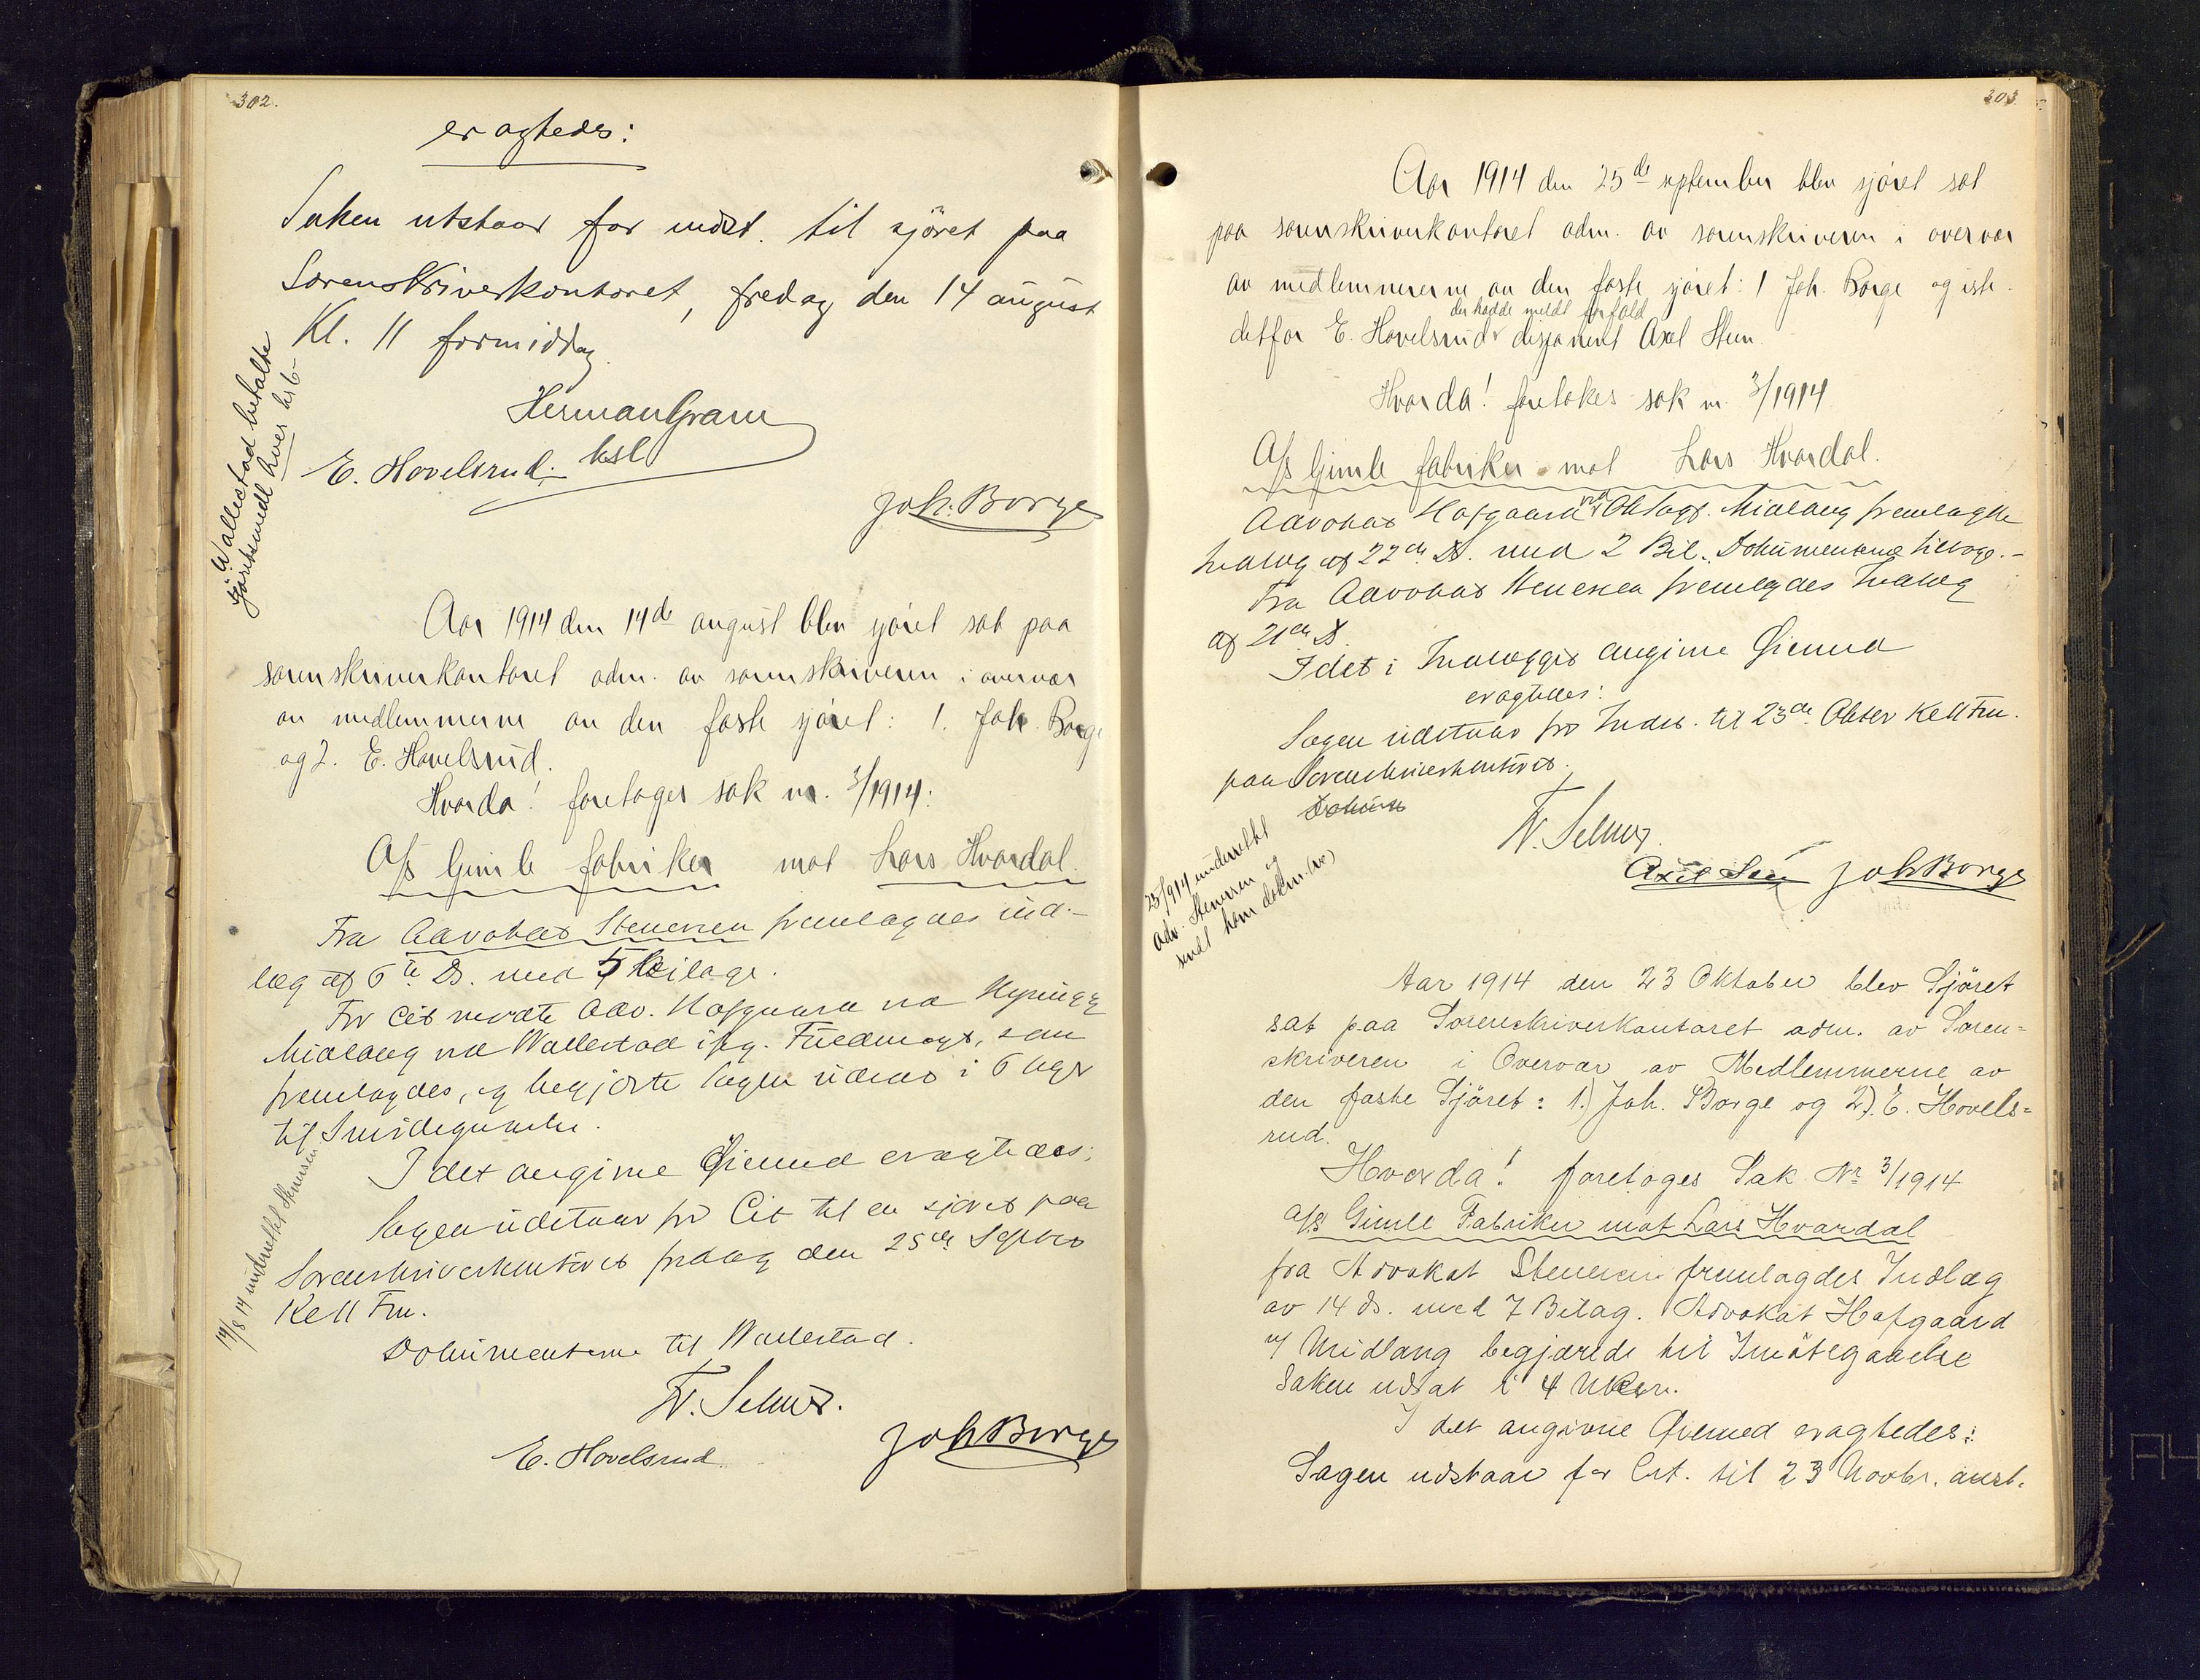 302.
eragtedes:
Saken utstaar for indst. til sjøret paa
Sorenskriverkontoret, fredag den 14 august
Kl. 11 formiddag.
Herman Gram
kst
E. Hovelsrud.
Joh. Borge
Wallestad betalte
sjøretsmedl hver kr 6-
Aar 1914 den 14de august blev sjöret sat paa
sorenskriverkontoret adm. av sorenskriveren i overvær
av medlemmerne av den faste sjöret: 1. Joh. Borge
og 2. E. Hovelsrud.
Hvorda! foretoges sak nr. 3/1914:
A/s Gimle fabriker mot Lars Hvardal.
Fra Advokat Stenersen fremlagdes ind-
læg af 6te Ds. med 5 bilage.
For Cit mødte Adv. Hofgaard
Midlang ved Wallestad ifg. Fuldmagt, som
fremlagdes, og begjærte Sagen udsat i 6 Uger
til Imødegaaelse.
I det angivne Øiemed eragtedes:
Sagen udstaar for Cit til en sjøret paa
Sorenskriverkontoret fredag den 25de Septbr
Kl 11 Fm.
Dokumenterne til Wallestad.
Fr. Selmer.
E. Hovelsrud
Joh Borge
14/8 14 underrettet Stenersen
303.
Aar 1914 den 25de september blev sjöret sat
paa sorenskriverkontoret adm. av sorenskriveren i overvær
av medlemmerne av den faste sjöret: 1 Joh. Borge og iste-
der hadde meldt forfald
detfor E. Hovelsrud disponent Axel Steen.
Hvorda! foretokes sak nr. 3/1914
A/s Gimle fabriker mot Lars Hvardal.
Advokat Hofgaard ved Midlang fremlagde
Indlæg af 22de Ds. med 2 Bil. Dokumenterne
Fra Advokat Stenersen fremlagdes Indlæg
af 21de Ds.
I det i Indlægget angivne Øiemed
eragtedes:
Sagen udstaar for Indst. til 23de Oktbr Kl 11 Fm.
paa Sorenskriverkontoret.
Fr. Selmer.
Axel Steen Joh Borge
25/9 14 underrettet
adv. Stenersen og
sendt ham dokm.
Aar 1914 den 23 Oktober blev Sjöret
sat paa Sorenskriverkontoret adm. av Soren=
skriveren i Overvær av Medlemmerne av
den faste Sjöret: 1.) Joh. Borge og 2). E. Hovels=
rud.
Hvorda! foretoges Sak Nr 3/1914
A/s Gimle Fabriker mot Lars Hvardal
fra Advokat Stenersen fremlagdes Indlæg
av 14 ds. med 7 Bilag. Advokat Hofgaard
v/ Midlang begjærede til Imötegaaelse
Saken udsat i 4 Uker.
I det angivne Öiemed eragtedes:
Sagen udstaar for Cit. til 23 Novbr. anst.